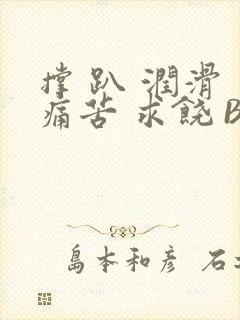 撑 趴 潤滑
痛苦 求饒 B
島本和彦 石